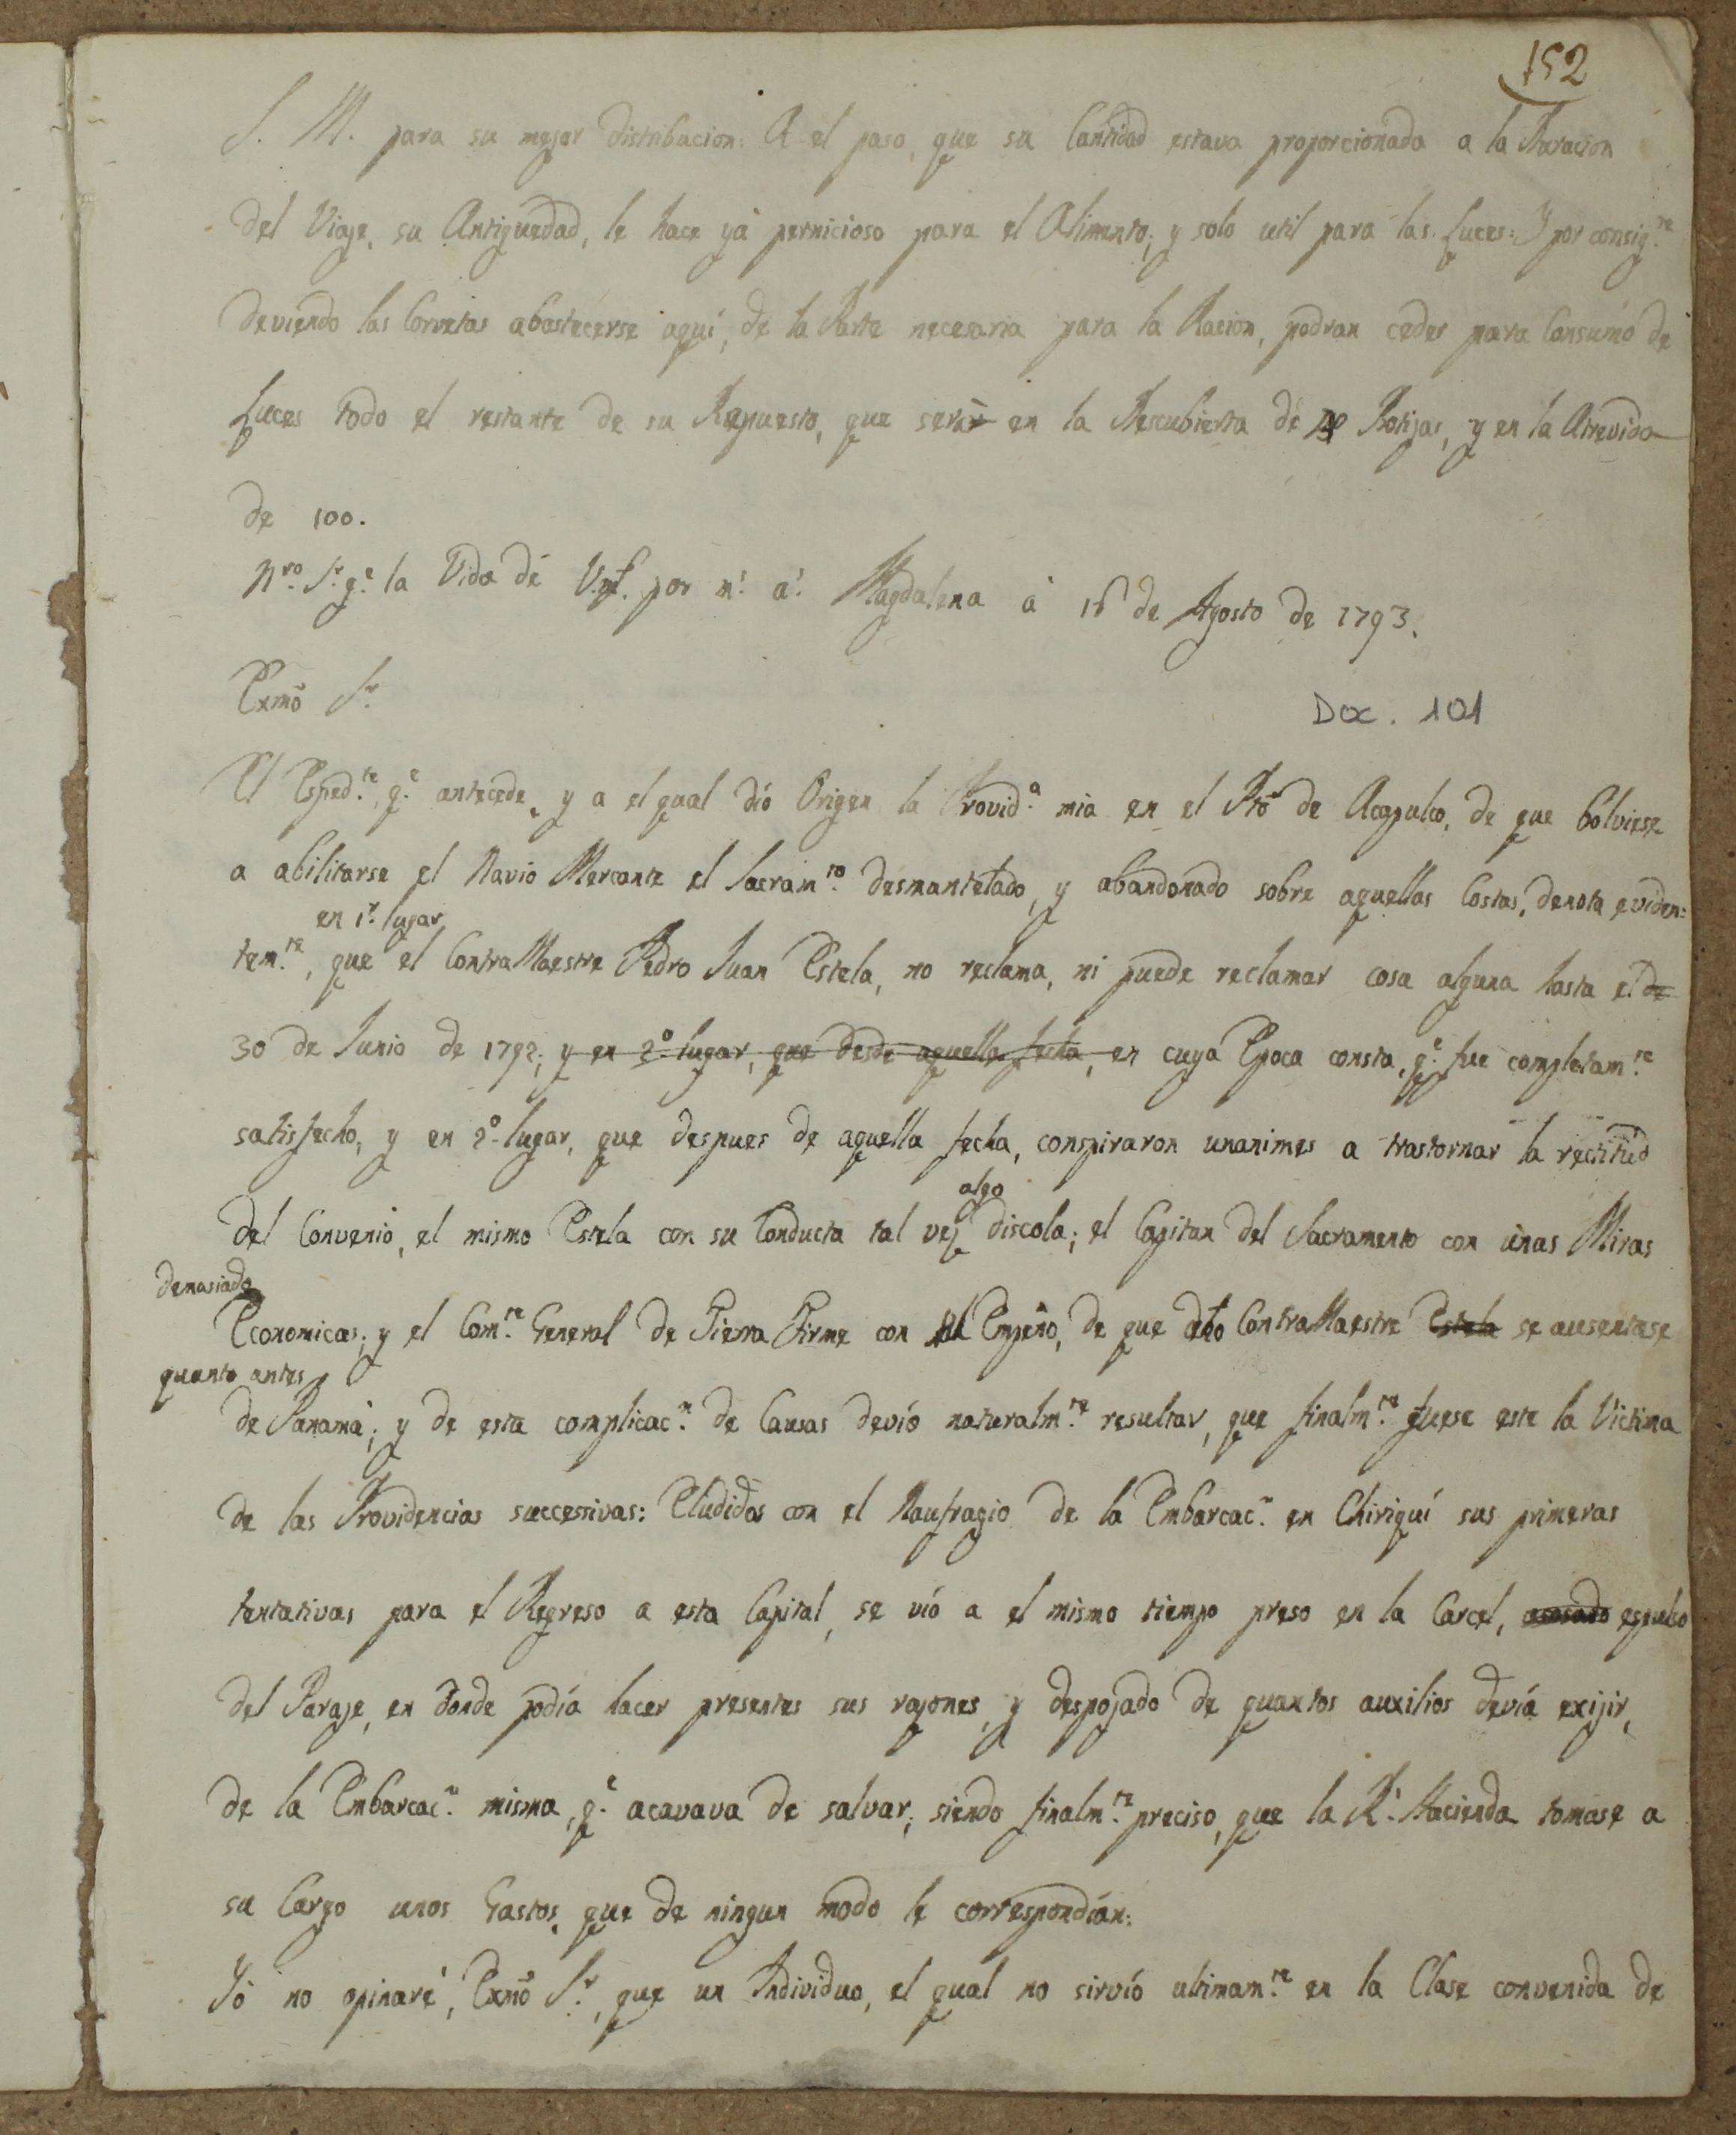 152
S. M. para su mejor distribucion: A el paso, que su Cantidad estava proporcionada a la Duracion
del Viaje, su Antiguedad, le hace yà pernicioso para el Alimento; y solo util para las Luces: Y por consig.te
deviendo las Corvetas abastecerse aquí, de la Parte necesaria para la Racion, podran ceder para Consumo de
Luces todo el restante de su Repuesto, que serà en la Descubierta de Botijas, y en la Atrevida
de 100.
Nro. Sr. g.e la Vida de V.E. por m.s a.s Magdalena à de Agosto de 1793.
Exmo Sr.
Doc. 101
El Exped.te q.e antecede, y a el qual dió Origen la Provid.a mia en el Pto de Acapulco, de que bolviese
a abilitarse el Navio Mercante el Sacram.to desmantelado, y abandonado sobre aquellas Costas, denota eviden=
en 1.r lugar
tem.te, que el ContraMaestre Pedro Juan Estela, no reclama, ni puede reclamar cosa alguna hasta el de
30 de Junio de 1792; y en 2.o lugar, que desde aquella fecha, en cuya Epoca consta, q.e fue completam.te
satisfecho; y en 2.o lugar, que despues de aquella fecha, conspiraron unanimes a trastornar la rectitud
algo
del Convenio, el mismo Estela con su Conducta tal vez discola; el Capitan del Sacramento con unas Miras
demasiado
Economicas; y el Com.te General de Tierra Firme con el Empeño, de que dho ContraMaestre Estela se ausentase
quanto antes
de Panamà; y de esta complicac.n de Causas devió naturalm.te resultar, que finalm.te fuese este la Victima
de las Providencias successivas: Eludidas con el Naufragio de la Embarcac.n en Chiriquí sus primeras
tentativas para el Regreso a esta Capital, se vió a el mismo tiempo preso en la Carcel, acosado espulso
del Paraje, en donde podía hacer presentes sus razones, y despojado de quantos auxilios devía exijir,
de la Embarcac.n misma, q.e acavava de salvar; siendo finalm.te preciso, que la R.l Hacienda tomase a
su Cargo unos Gastos, que de ningun modo le correspondían:
Yó no opinaré, Exmo Sr., que un Individuo, el qual no sirvió ultimam.te en la Clase convenida de